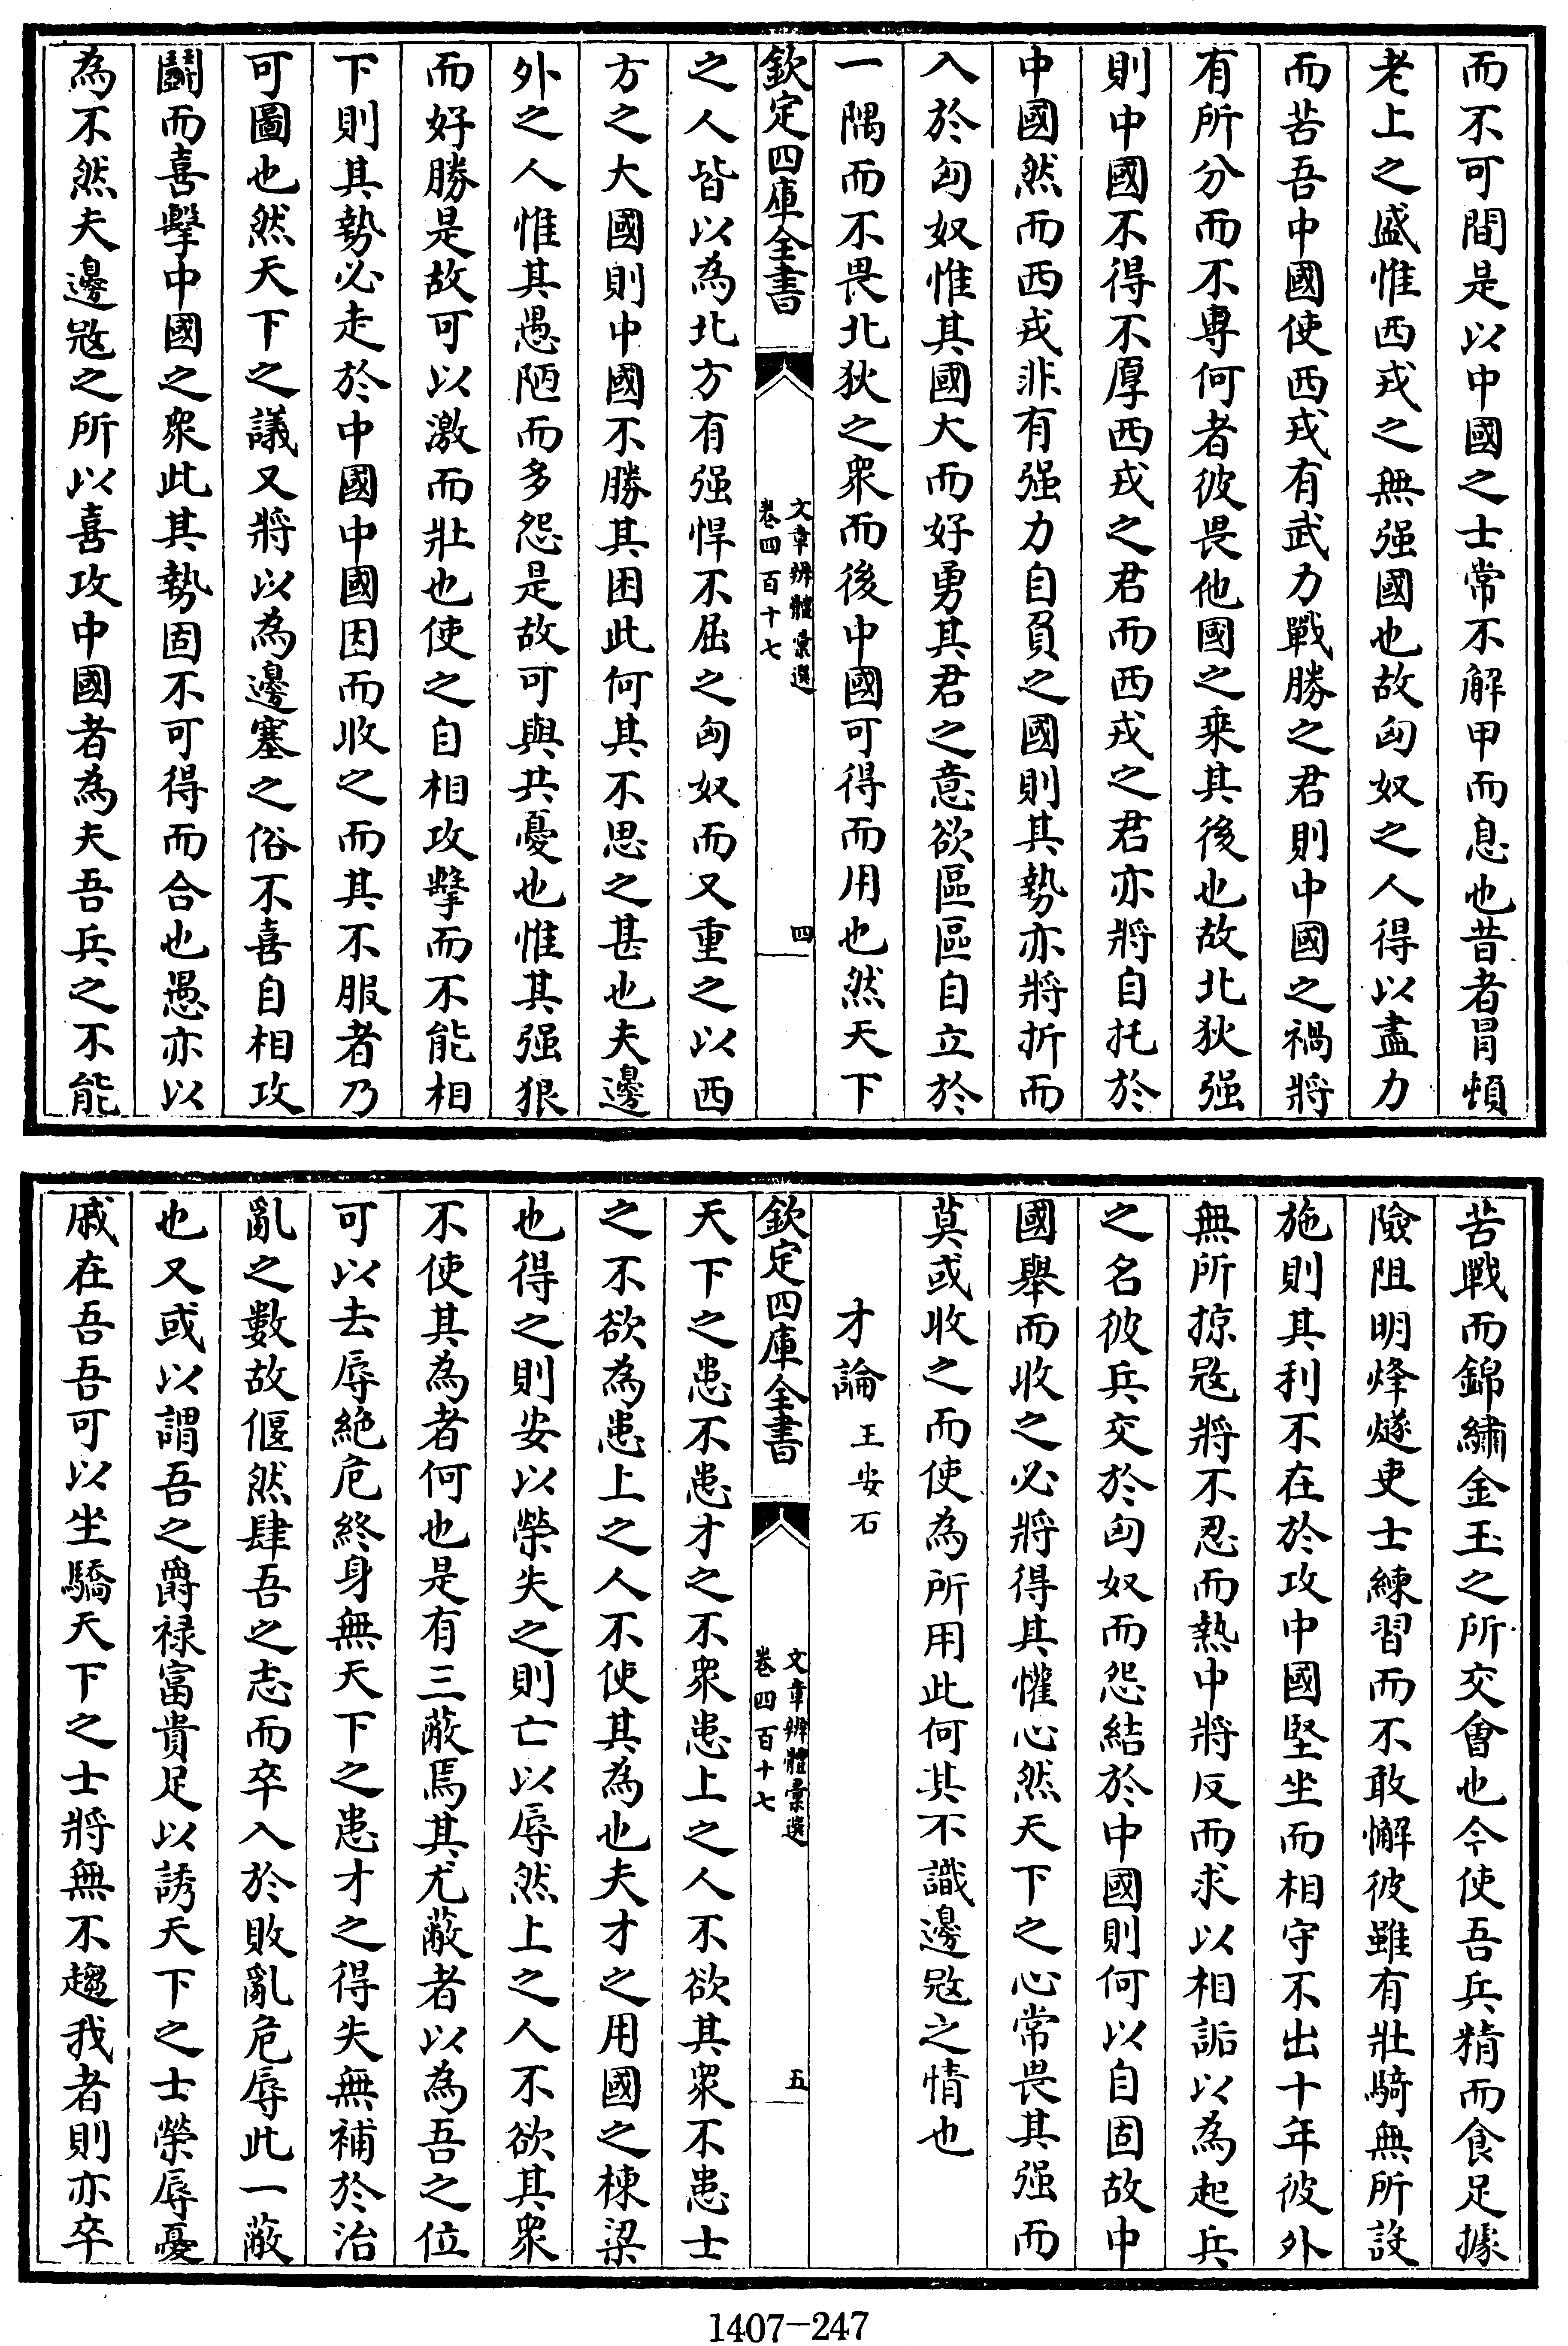 而不可間是以中國之士常不解甲而息也昔者冒頓
老上之盛惟西戎之無强國也故匈奴之人得以盡力
而苦吾中國使西戎有武力戰勝之君則中國之禍將
有所分而不專何者彼畏他國之乗其後也故北狄强
則中國不得不厚西戎之君而西戎之君亦將自托於
中國然而西戎非有强力自負之國則其勢亦將折而
入於匈奴惟其國大而好勇其君之意欲區區自立於
一隅而不畏北狄之衆而後中國可得而用也然天下
欽定四庫全書
文章辨體彙選
卷四百十七
四
之人皆以為北方有强悍不屈之匈奴而又重之以西
方之大國則中國不勝其困此何其不思之甚也夫邊
外之人惟其愚陋而多怨是故可與共憂也惟其强狠
而好勝是故可以激而壯也使之自相攻擊而不能相
下則其勢必走於中國中國因而收之而其不服者乃
可圖也然天下之議又將以為邊塞之俗不喜自相攻
鬬而喜擊中國之衆此其勢固不可得而合也愚亦以
為不然夫邊宼之所以喜攻中國者為夫吾兵之不能
苦戰而錦繡金玉之所交會也今使吾兵精而食足據
險阻明烽燧吏士練習而不敢懈彼雖有壯騎無所設
施則其利不在於攻中國堅坐而相守不出十年彼外
無所掠宼將不忍而熱中將反而求以相詬以為起兵
之名彼兵交於匈奴而怨結於中國則何以自固故中
國舉而收之必將得其懽心然天下之心常畏其强而
莫或收之而使為所用此何其不識邊宼之情也
才論 王安石
欽定四庫全書
文章辨體彙選
卷四百十七
五
天下之患不患才之不衆患上之人不欲其衆不患士
之不欲為患上之人不使其為也夫才之用國之棟梁
也得之則安以榮失之則亡以辱然上之人不欲其衆
不使其為者何也是有三蔽焉其尤蔽者以為吾之位
可以去辱絶危終身無天下之患才之得失無補於治
亂之數故偃然肆吾之志而卒入於敗亂危辱此一蔽
也又或以謂吾之爵禄富貴足以誘天下之士榮辱憂
戚在吾吾可以坐驕天下之士將無不趨我者則亦卒
1407-247